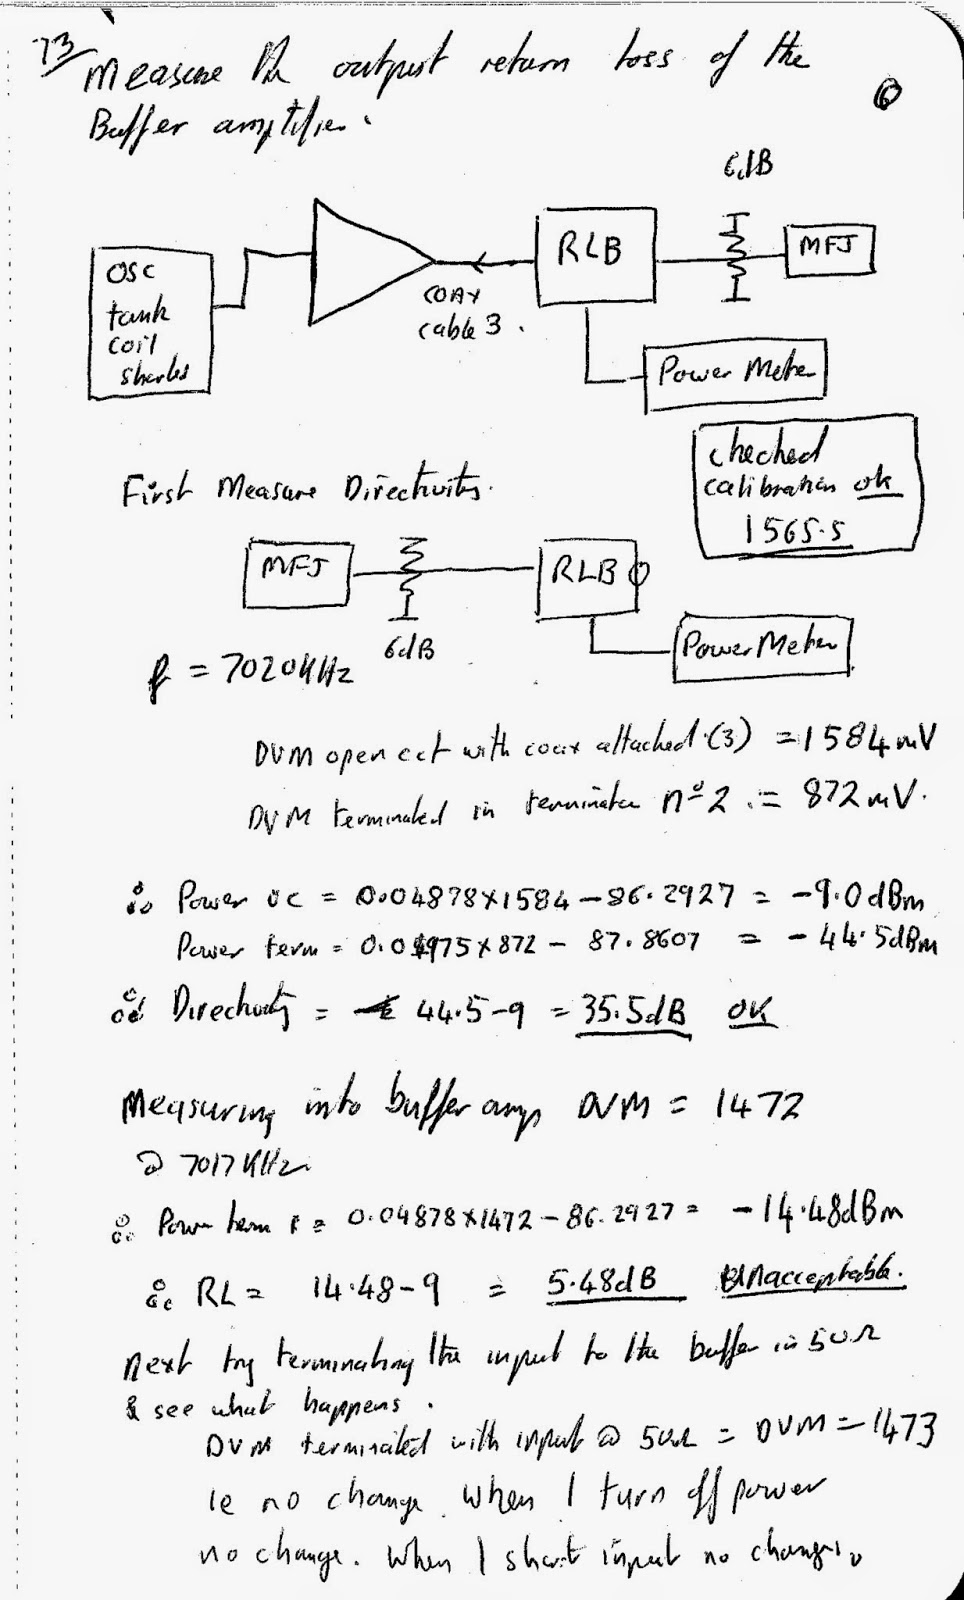 73
Measure the output return loss of the
Buffer amplifier.
6
6dB
OSC
tank
coil
shorted
COAX
cable 3.
RLB
MFJ
Power Meter
checked
calibration ok
1565.5
First Measure Directivity.
MFJ
6dB
RLB
Power Meter
f = 7020KHz
DVM open cct with coax attached (3) = 1584mV
DVM terminated in terminator nº2 = 872mV.
∴ Power oc = 0.04878x1584-86.2927 = -9.0dBm
Power term = 0.04975x872 - 87.8607 = -44.5dBm
∴ Directivity = 44.5-9 = 35.5dB OK
Measuring into buffer amp DVM = 1472
@ 7017KHz
∴ Power term = 0.04878x1472-86.2927 = -14.48dBm
∴ RL = 14.48-9 = 5.48dB Unacceptable.
Next try terminating the input to the buffer in 50Ω
& see what happens.
DVM terminated with input @ 50Ω = DVM = 1473
ie no change. When I turn off power
no change. When I short input no change.